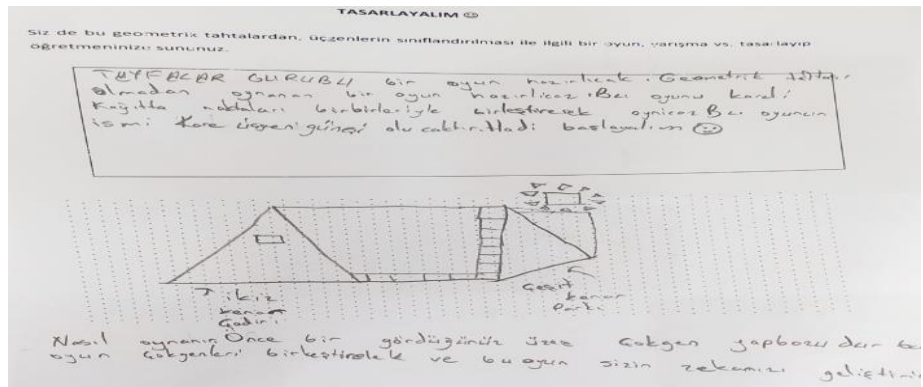 TASARLAYALIM ☺
Siz de bu geometrik tahtalardan, üçgenlerin sınıflandırılması ile ilgili bir oyun, yarışma vs. tasarlayıp
öğretmeninize sununuz.
TAYFALAR GURUBU bir oyun hazırlıcak. Geometrik tahta
olmadan oynanan bir oyun hazırlicaz. Bu oyunu kareli
Kağıtta noktaları birbirleriyle birleştirerek oynicaz Bu oyunun
ismi Kare üçgeni güneşi olucaktır. Hadi başlayalım ☺
ikiz
kenar
Çadırı
Çeşit
kenar
Parkı
Nasıl oynanır Önce bir gördüğünüz üzre Çokgen yapbozudur
oyun Çokgenleri birleştirelek ve bu oyun sizin zekamızı